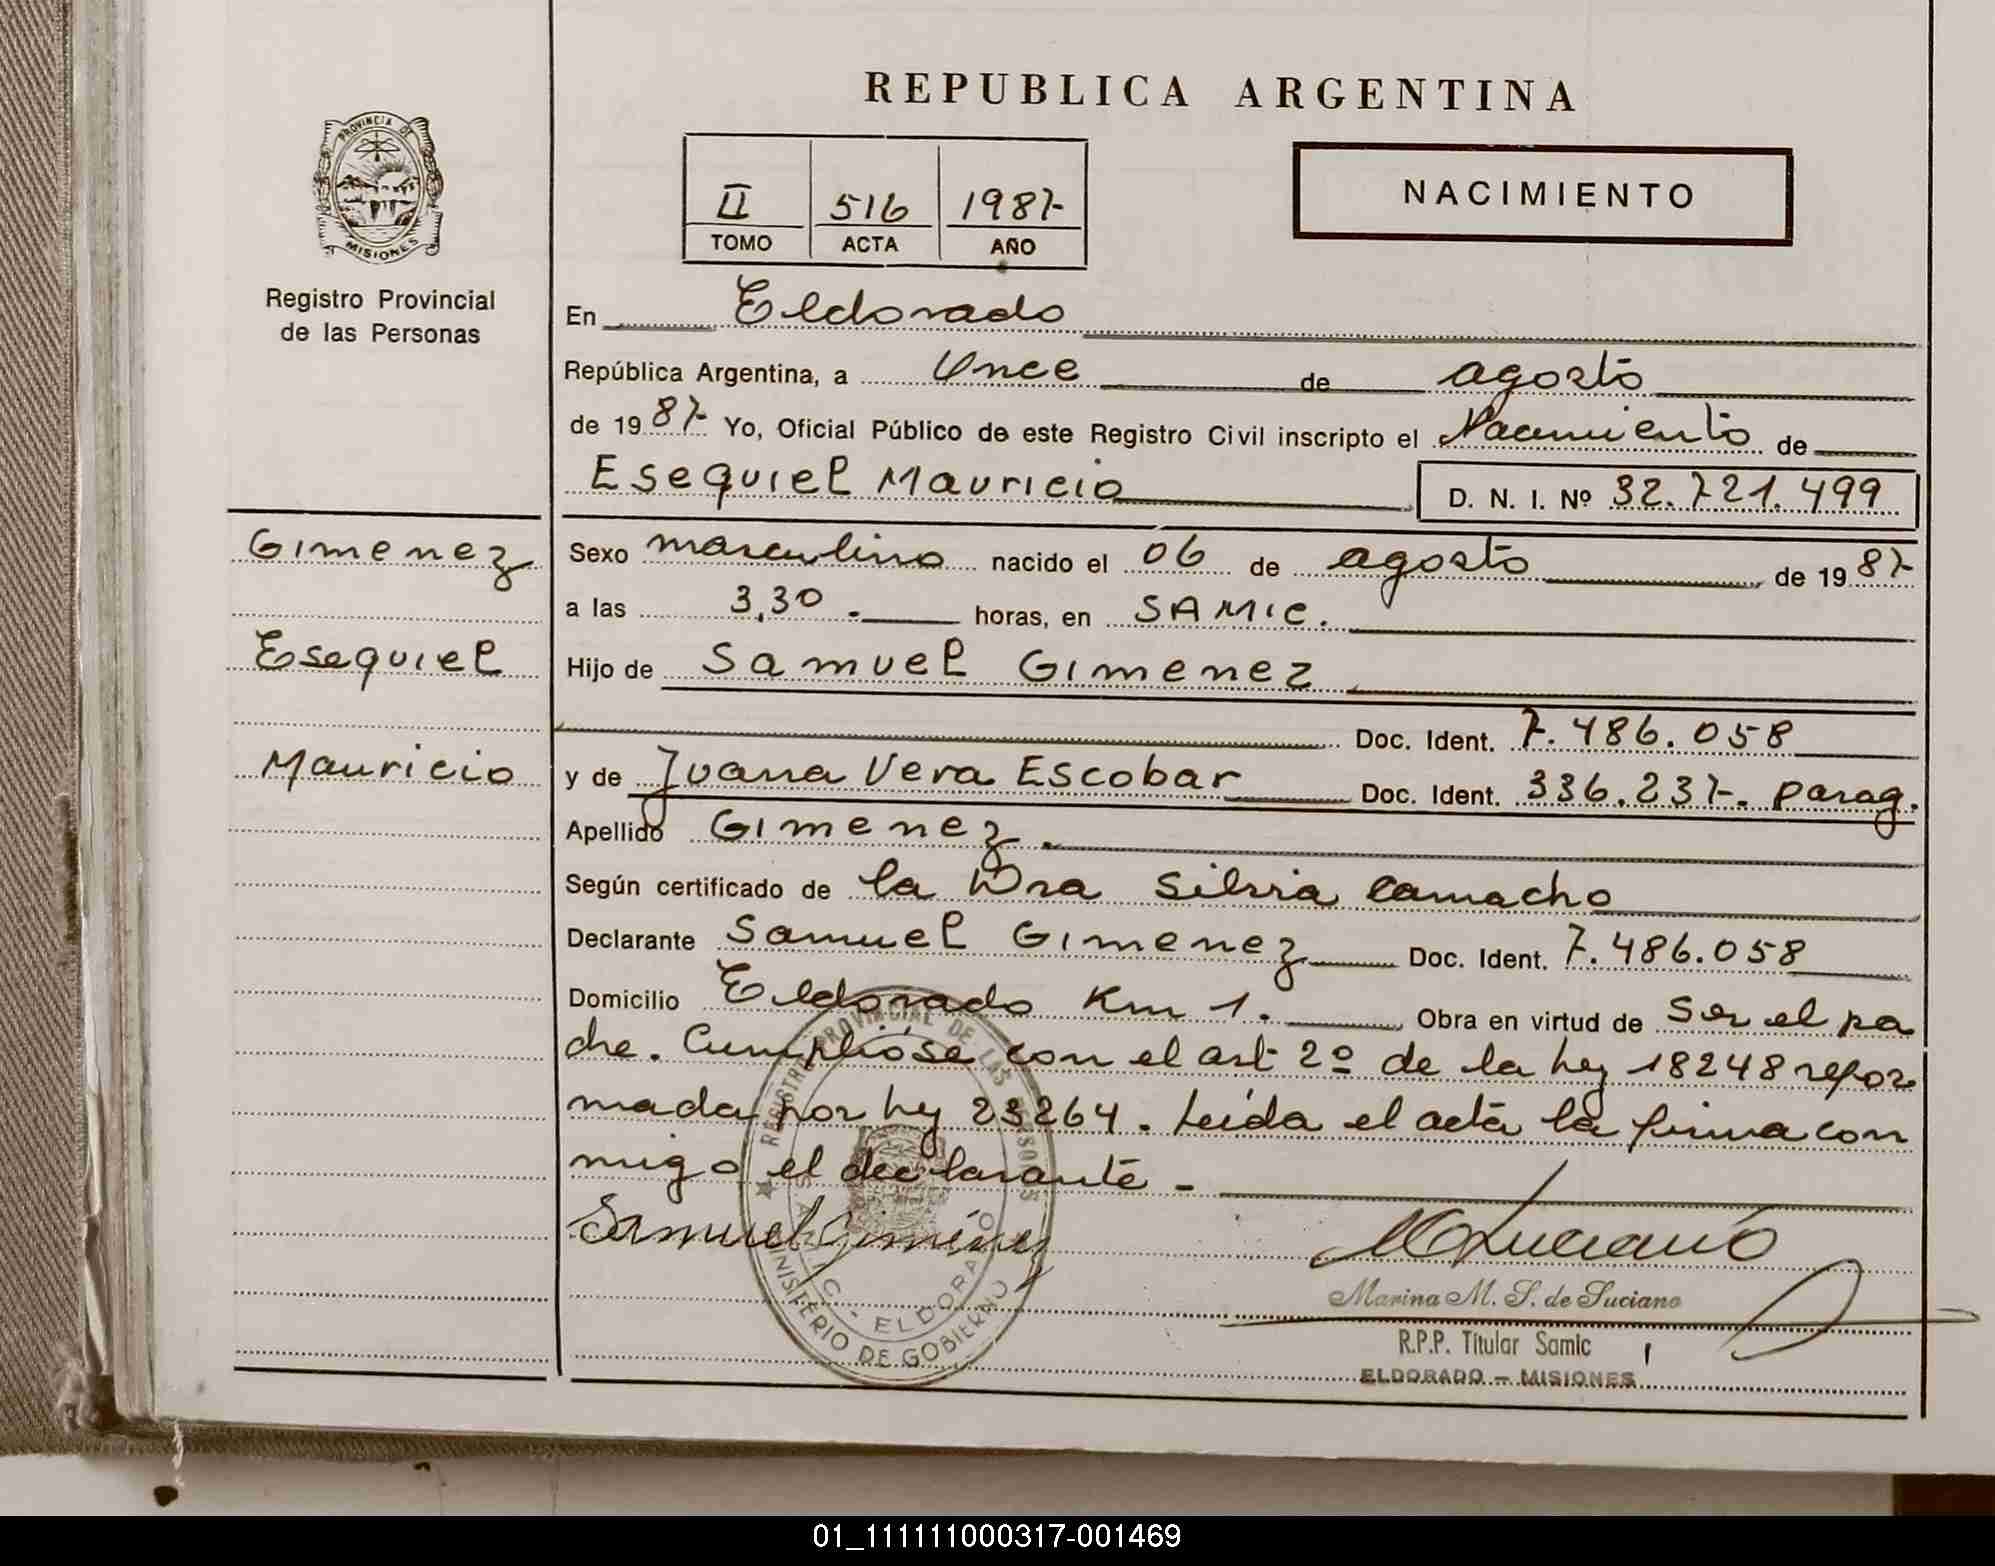 REPUBLICA ARGENTINA
PROVINCIA DE
MISIONES
Registro Provincial
de las Personas
II 516 1987
TOMO ACTA AÑO
NACIMIENTO
En Eldorado
República Argentina, a Once de agosto
de 1987 Yo, Oficial Público de este Registro Civil inscripto el Nacimiento de
Esequiel Mauricio D. N. I. Nº 32.721.499
Gimenez
Esequiel
Mauricio
Sexo masculino nacido el 06 de agosto de 1987
a las 3,30. horas, en SAMIC.
Hijo de Samuel Gimenez
Doc. Ident. 7.486.058
y de Juana Vera Escobar Doc. Ident. 336.237. parag.
Apellido Gimenez.
Según certificado de la Dra Silvia Camacho
Declarante Samuel Gimenez Doc. Ident. 7.486.058
Domicilio Eldorado Km 1. Obra en virtud de Ser el pa
dre. Cumplióse con el art 2º de la ley 18248 refor
mada por ley 23264. Leída el acta la firma con
migo el declarante -
Samuel Giménez
REGISTRO PROVINCIAL DE LAS PERSONAS
SAMIC - ELDORADO
MINISTERIO DE GOBIERNO
MLuciano
Marina M. S. de Luciano
R.P.P. Titular Samic
ELDORADO - MISIONES
01_111111000317-001469